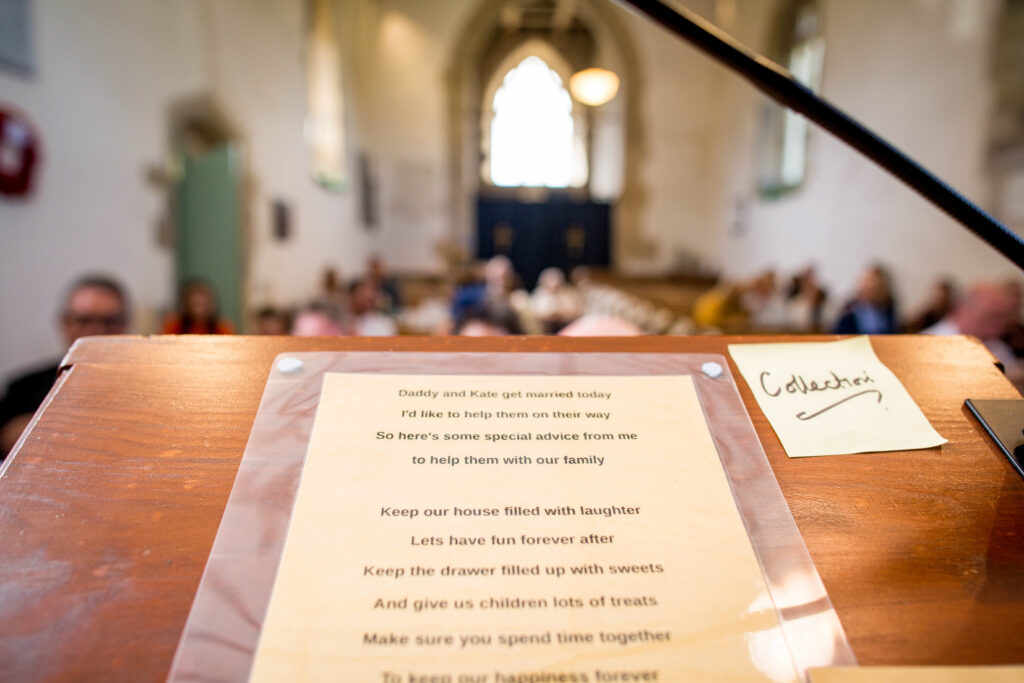 Daddy and Kate get married today
I'd like to help them on their way
So here's some special advice from me
to help them with our family
Keep our house filled with laughter
Lets have fun forever after
Keep the drawer filled up with sweets
And give us children lots of treats
Make sure you spend time together
To keep our happiness forever
Collection